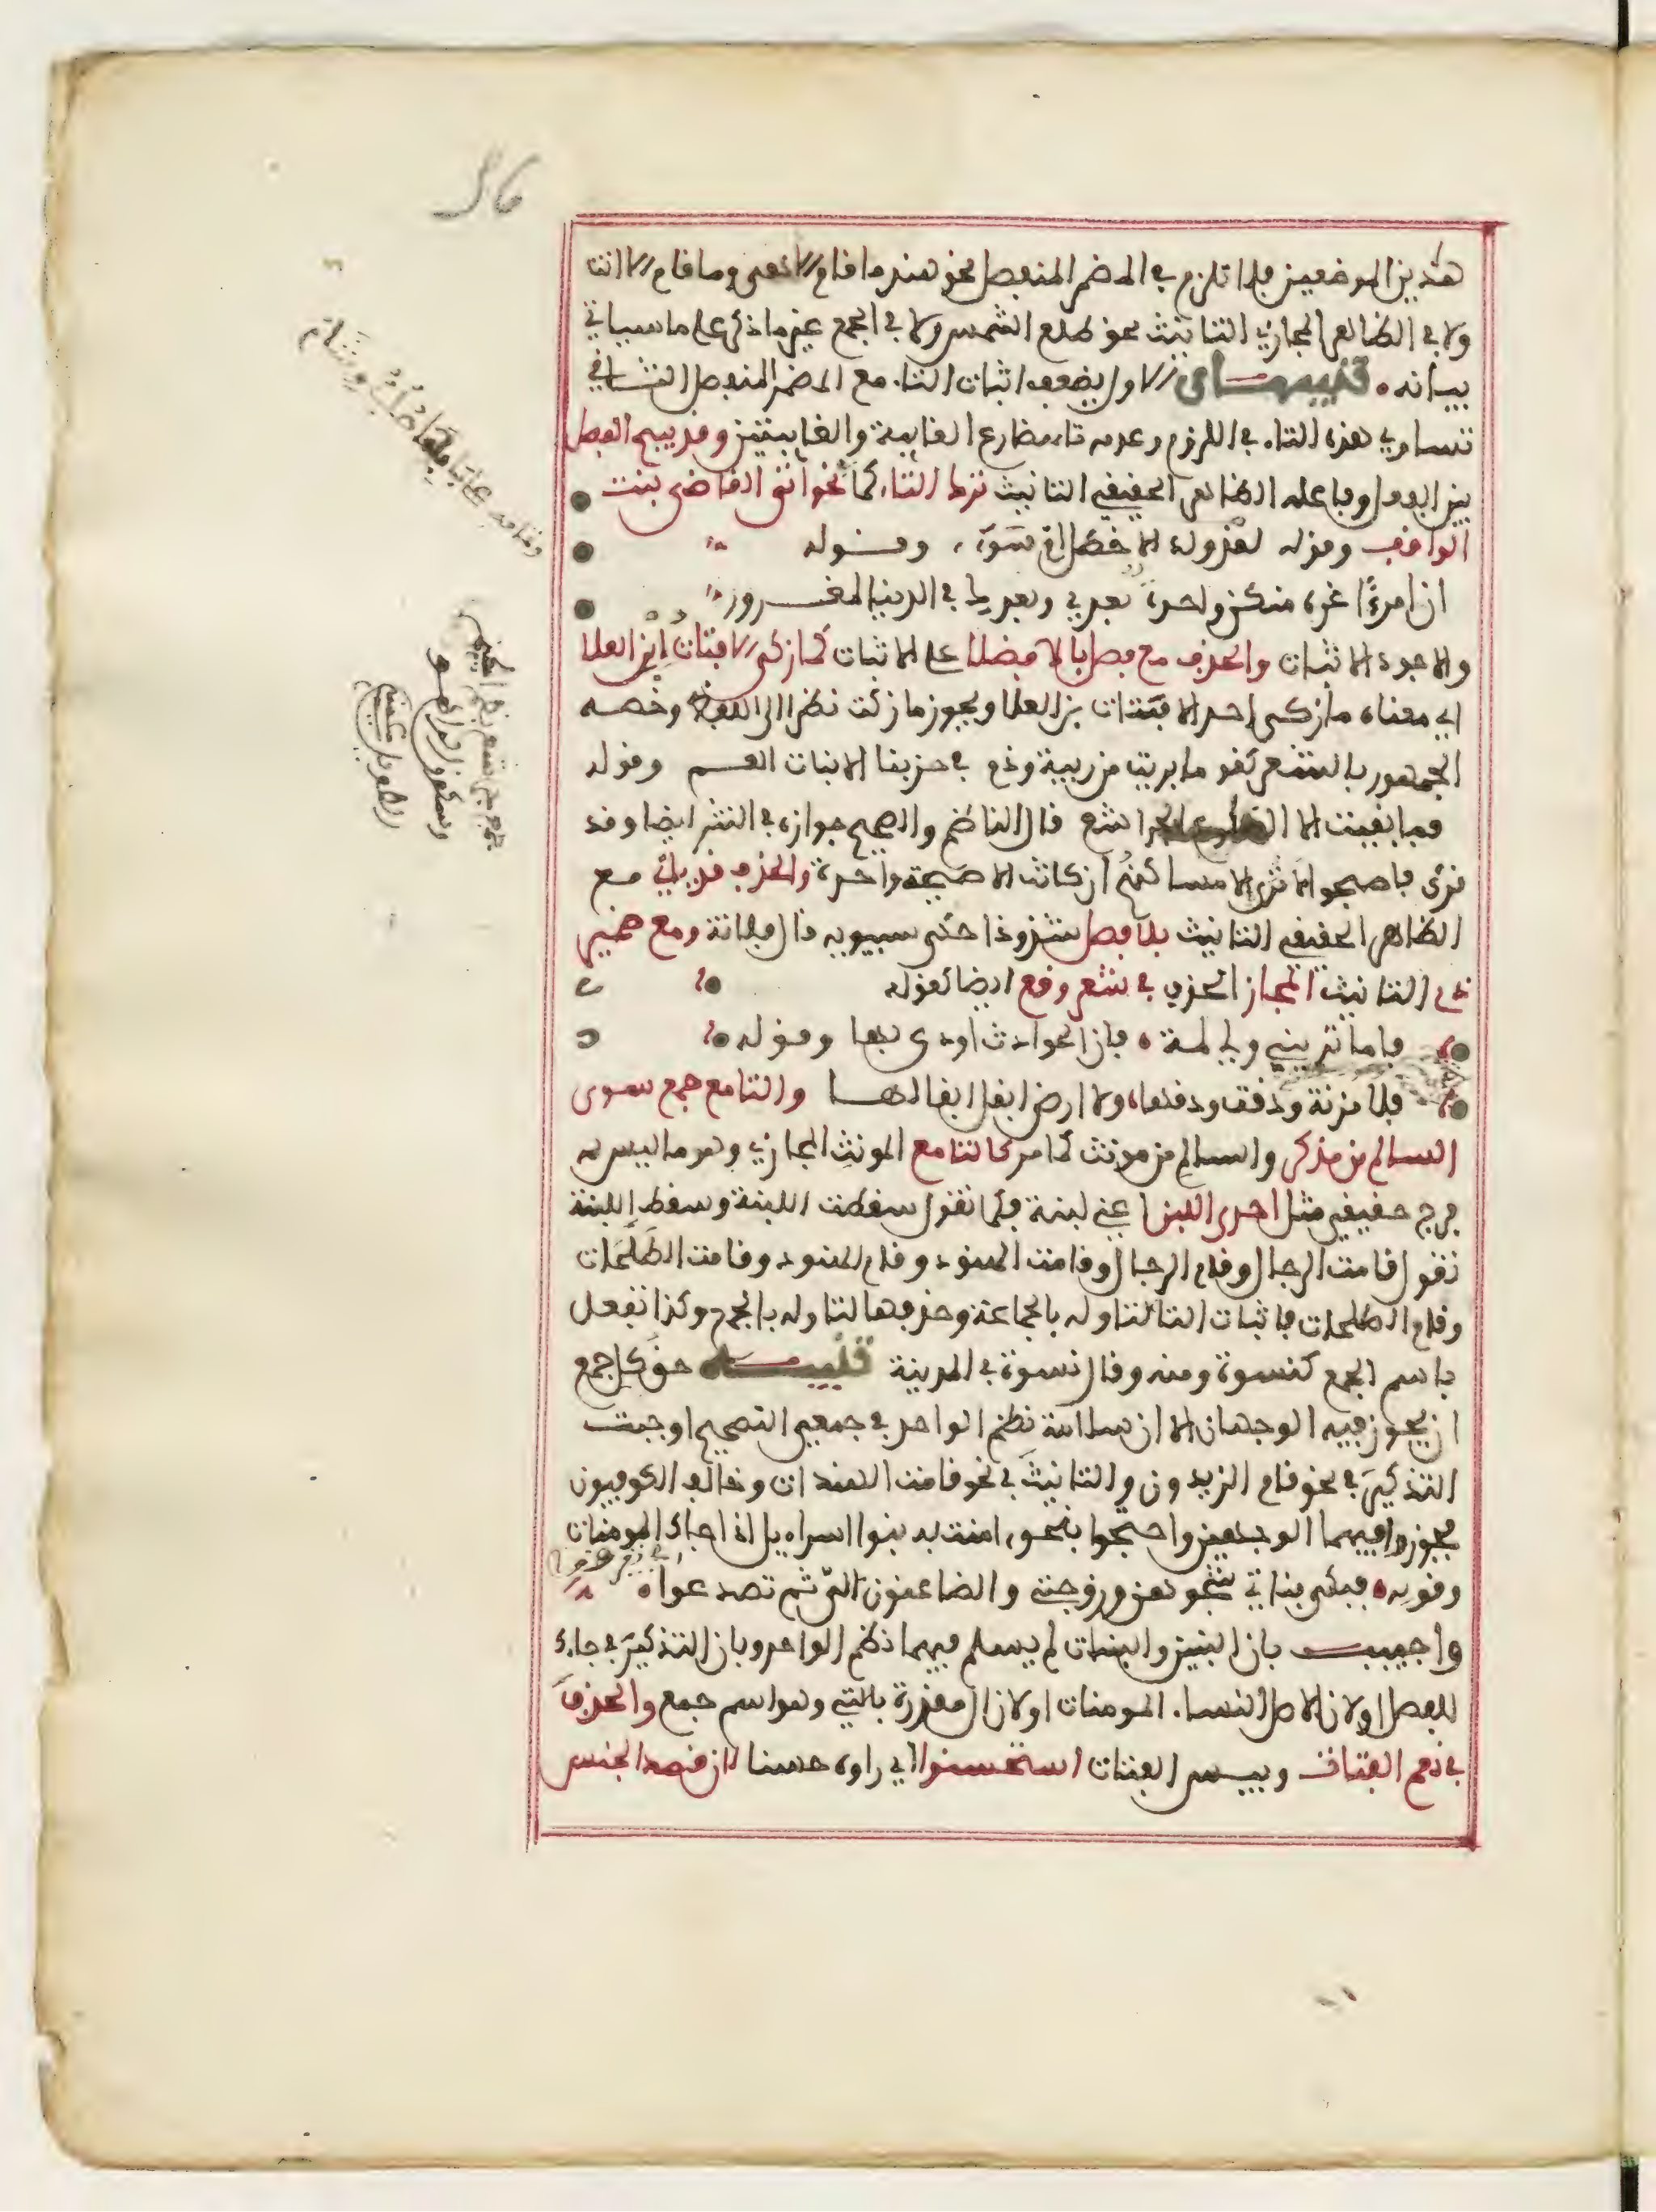 هذين الموضعين فلا تلزم في المضمر المنفصل نحو هند ما قام الا هي وما قام الا انت
ولا في الظاهر المجازي التانيث نحو طلع الشمس ولا في الجمع غير ما ذكر على ما سياتي
بيانه تنبيهان الاول يضعف اثبات التاء مع المضمر المنفصل الثاني
تساوي هذه التاء في اللزوم وعدمه تاء مضارع الغايبة والغايبتين وقد يبيح الفصل
بين الفعل وفاعله الظاهر الحقيقي التانيث ترك التاء كما في نحو اتى القاضي بنت
الواقف وقوله لقد ولد الاخيطل ام سوء وقوله
ان امرءا غره منكن واحدة بعدي وبعدك في الدنيا لمغرور
والاجود الاثبات والحذف مع فصل بالا فضلا على الاثبات كما زكى الا فتاة ابن العلا
اي معناه ما زكى احد الا فتاة بن العلا ويجوز ما زكت نظرا الى اللفظ وخصه
الجمهور بالشعر كقوله ما بريت من ريبة وذم في حربنا الا بنات العم وقوله
فما بقيت الا الضلوع الجراشع قال الناظم والصحيح جوازه في النثر ايضا وقد
قرئ فاصبحوا لا ترى الا مساكنهم ان كانت الا صيحة واحدة والحذف قد ياتي مع
الظاهر الحقيقي التانيث بلا فصل شذوذا حكى سيبويه قال فلانة ومع ضمير
ذي التانيث المجاز الحذف في شعر وقع ايضا كقوله
فاما تريني ولي لمة فان الحوادث اودى بها وقوله
فلا مزنة ودقت ودقها ولا ارض ابقل ابقالها والتا مع جمع سوى
السالم من مذكر والسالم من مونث كما مر كالتا مع المونث المجازي وهو ما ليس له
فرج حقيقي مثل احدى اللبن اعني لبنة فكما تقول سقطت اللبنة وسقط اللبنة
تقول قامت الرجال وقام الرجال وقامت الهنود وقام الهنود وقامت الطلحات
وقام الطلحات فاثبات التا لتاوله بالجماعة وحذفها لتاوله بالجمع وكذا تفعل
باسم الجمع كنسوة ومنه وقال نسوة في المدينة تنبيه حق كل جمع
ان يجوز فيه الوجهان الا ان سلامة نظم الواحد في جمعي التصحيح اوجبت
التذكير في نحو قام الزيدون والتانيث في نحو قامت الهندات وخالف الكوفيون
فجوزوا فيهما الوجهين واحتجوا بنحو امنت به بنوا اسراءيل اذا جاءك المومنات
وقوله فبكى بناتي شجوهن وزوجتي والضاعنون الي ثم تصدعوا
واجيب بان البنين والبنات لم يسلم فيهما نظم الواحد وبان التذكير في جاءك
للفصل او لان الاصل النساء المومنات او لان ال مقدرة بالتي وهو اسم جمع والحذف
في نعم الفتاة وبيس الفتاة استحسنوا اي راوه حسنا لان قصد الجنس